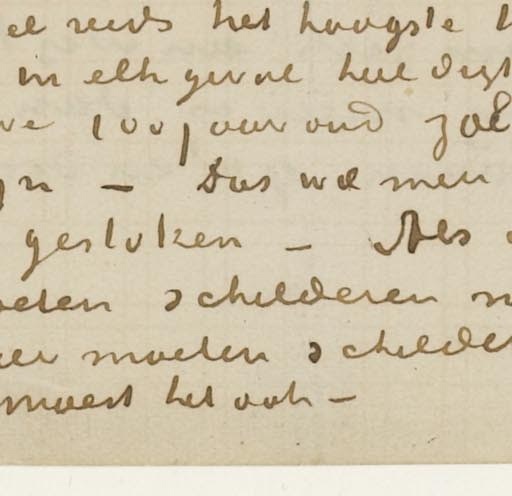 reeds het hoogste
in elk geval heel digt
100 jaar oud zal
– Dus wel men
gestoken – Als
schilderen
moeten schilder
moest het ook –